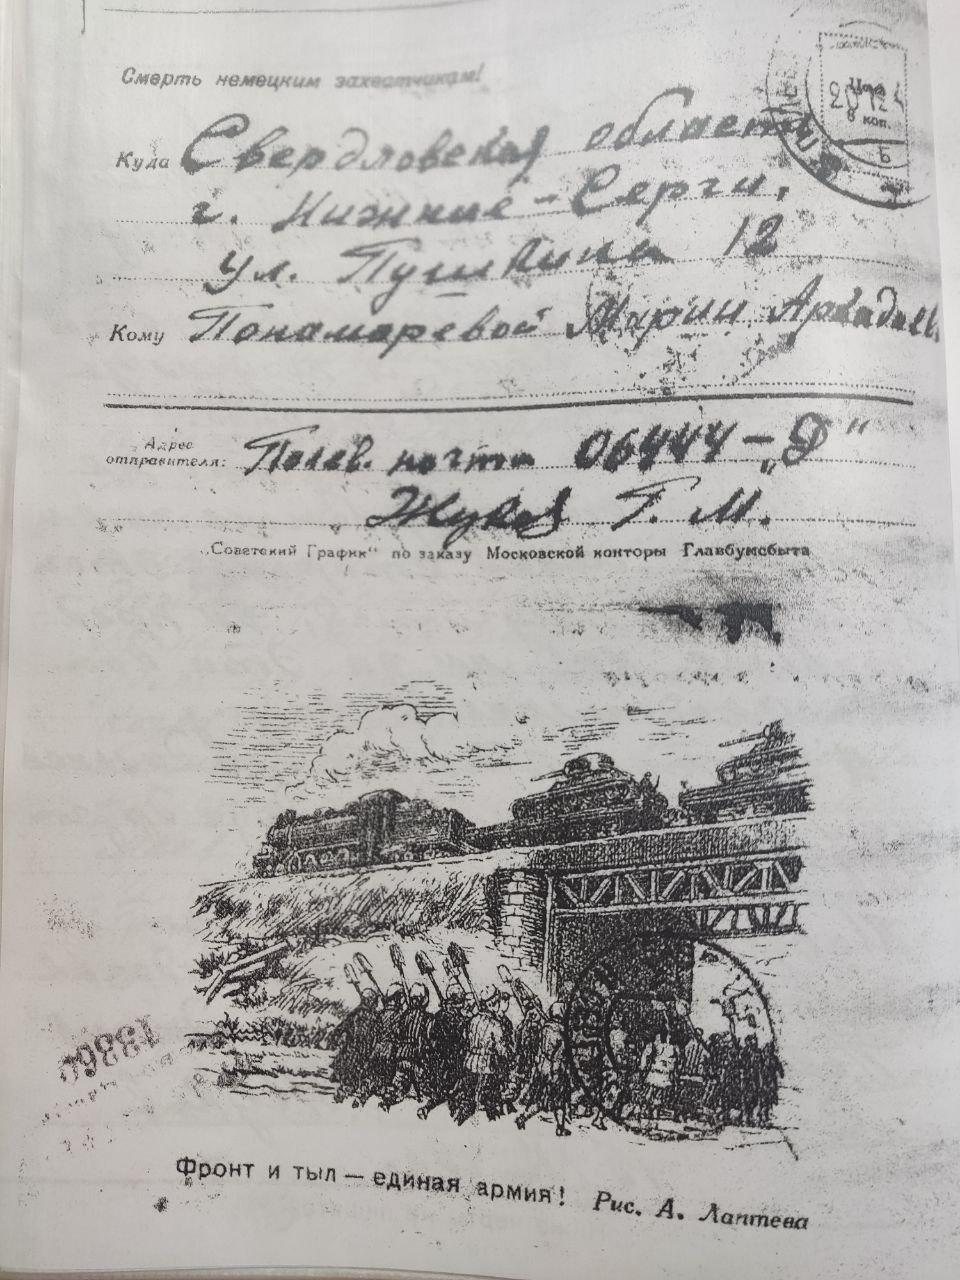 Смерть немецким захватчикам!
Цена
8 коп.
Куда Свердловская область
г. Нижние-Серги,
ул. Пушкина 12
Кому Пономаревой Марии Аркадьев
Адрес
отправителя: Полев. почта 06444-„Д"
Жуков Г. М.
„Советский График“ по заказу Московской конторы Главбумсбыта
13360
Фронт и тыл — единая армия! Рис. А. Лаптева